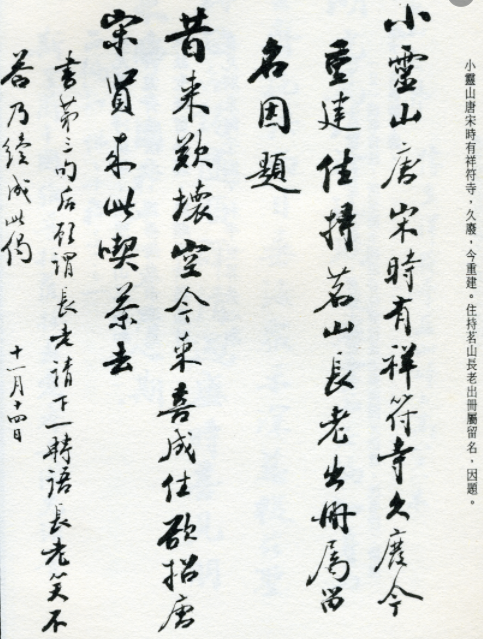 小靈山唐宋時有祥符寺，久廢，今重建。住持茗山長老出冊屬留名，因題。
小靈山唐宋時有祥符寺久廢今
重建住持茗山長老出冊属留
名因題
昔来歎壞空今来喜成住欲招唐
宋賢来此喫茶去
書第三句后顧謂長老請下一轉語長老笑不
答乃續成此偈
十一月十四日